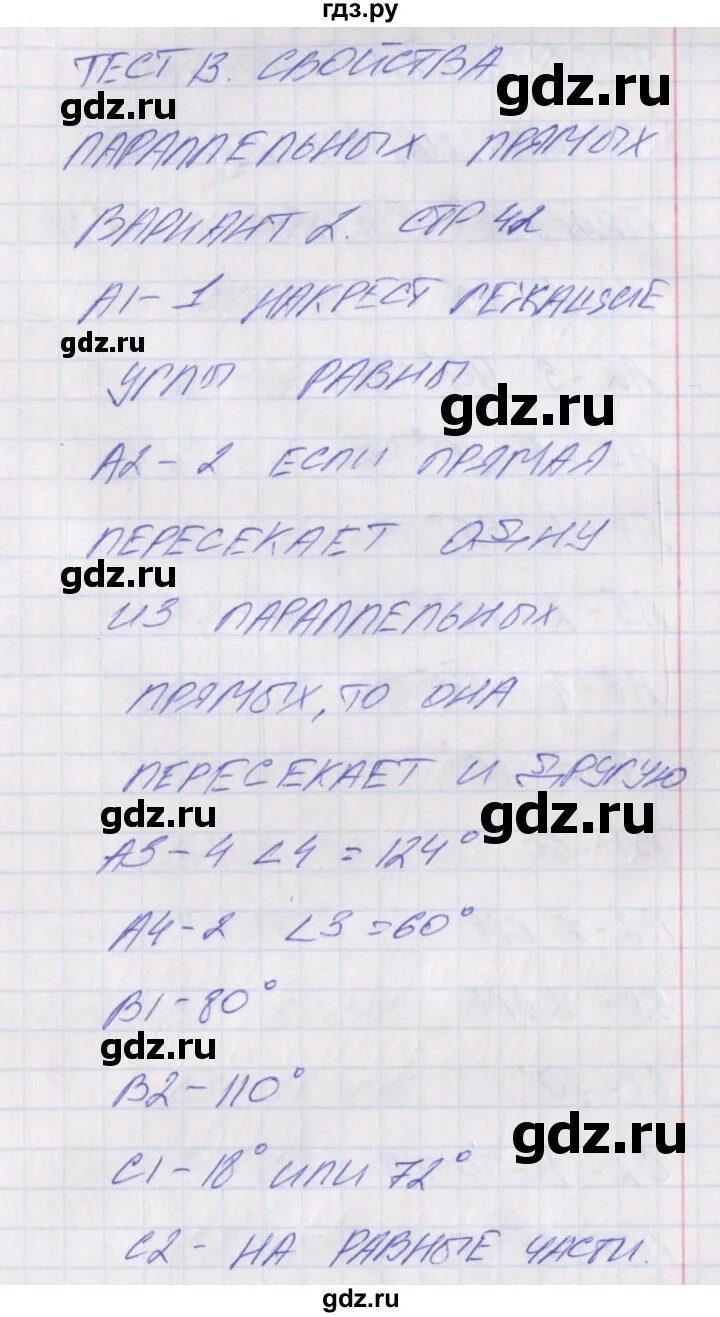 гдз.ру
ТЕСТ 13. СВОЙСТВА
gdz.ru
gdz.ru
ПАРАЛЛЕЛЬНЫХ ПРЯМЫХ
ВАРИАНТ 2. СТР 42
А1 - 1 НАКРЕСТ ЛЕЖАЩИЕ
gdz.ru
УГЛЫ РАВНЫ
gdz.ru
А2 - 2 ЕСЛИ ПРЯМАЯ
ПЕРЕСЕКАЕТ ОДНУ
gdz.ru
ИЗ ПАРАЛЛЕЛЬНЫХ
ПРЯМЫХ, ТО ОНА
ПЕРЕСЕКАЕТ И ДРУГУЮ
gdz.ru
gdz.ru
А3 - 4 ∠4 = 124°
А4 - 2 ∠3 = 60°
В1 - 80°
gdz.ru
В2 - 110°
gdz.ru
С1 - 18° ИЛИ 72°
С2 - НА РАВНЫЕ ЧАСТИ.
gdz.ru